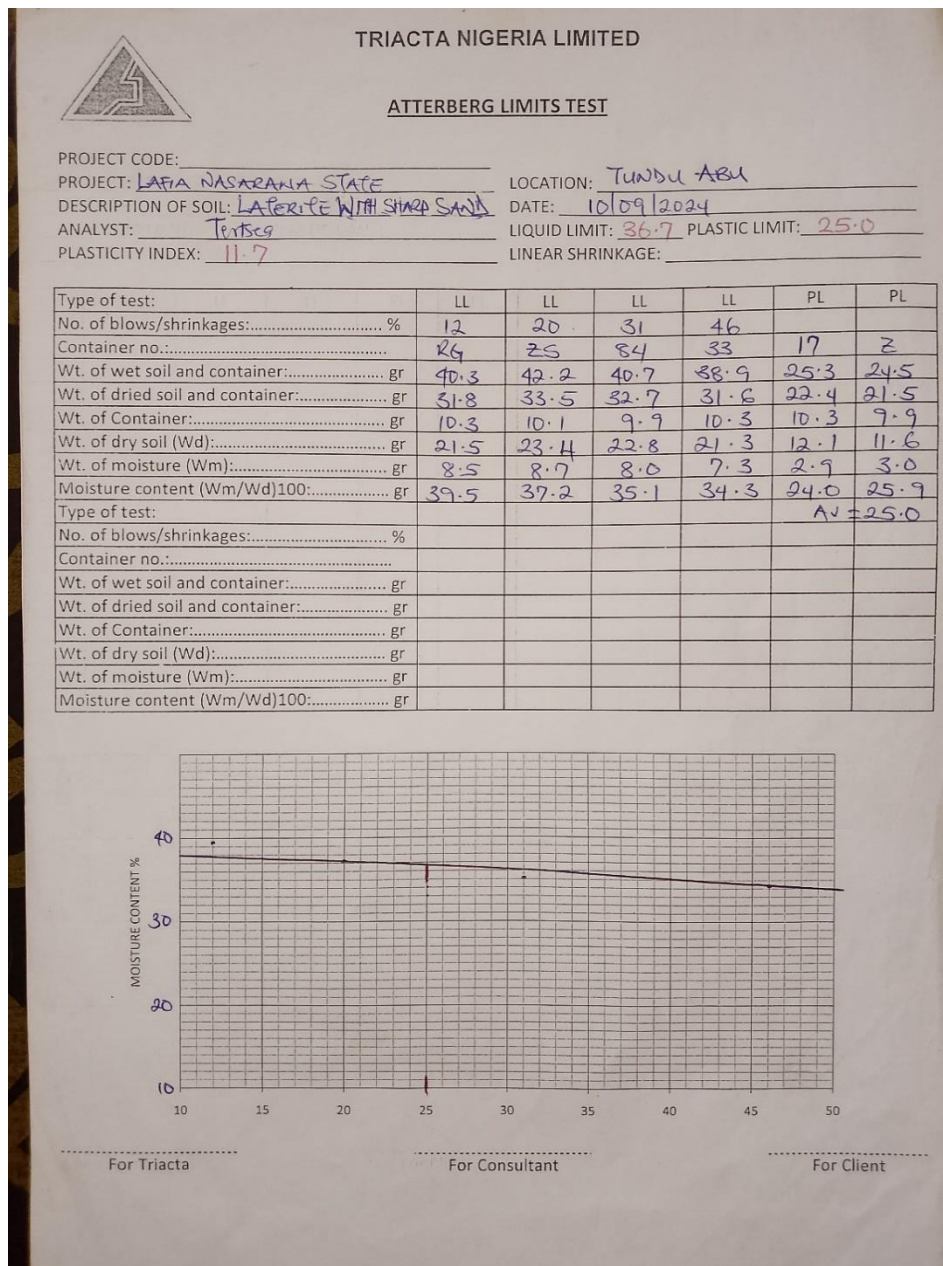 TRIACTA NIGERIA LIMITED
ATTERBERG LIMITS TEST
PROJECT CODE:
PROJECT: LAFIA NASARANA STATE
LOCATION: TUNDU ABU
DESCRIPTION OF SOIL: LATERITE WITH SHARP SAND
DATE: 10/09/2024
ANALYST: Tertsea
LIQUID LIMIT: 36.7 PLASTIC LIMIT: 25.0
PLASTICITY INDEX: 11.7
LINEAR SHRINKAGE:
Type of test: LL LL LL LL PL PL
No. of blows/shrinkages:.............................. % 12 20 31 46
Container no.:................................................. RG ZS 84 33 17 Z
Wt. of wet soil and container:..................... gr 40.3 42.2 40.7 38.9 25.3 24.5
Wt. of dried soil and container:................... gr 31.8 33.5 32.7 31.6 22.4 21.5
Wt. of Container:........................................... gr 10.3 10.1 9.9 10.3 10.3 9.9
Wt. of dry soil (Wd):...................................... gr 21.5 23.4 22.8 21.3 12.1 11.6
Wt. of moisture (Wm):.................................. gr 8.5 8.7 8.0 7.3 2.9 3.0
Moisture content (Wm/Wd)100:................... gr 39.5 37.2 35.1 34.3 24.0 25.9
Type of test: AV = 25.0
No. of blows/shrinkages:.............................. %
Container no.:.................................................
Wt. of wet soil and container:..................... gr
Wt. of dried soil and container:................... gr
Wt. of Container:........................................... gr
Wt. of dry soil (Wd):...................................... gr
Wt. of moisture (Wm):.................................. gr
Moisture content (Wm/Wd)100:................... gr
MOISTURE CONTENT %
40
30
20
10
10 15 20 25 30 35 40 45 50
For Triacta For Consultant For Client